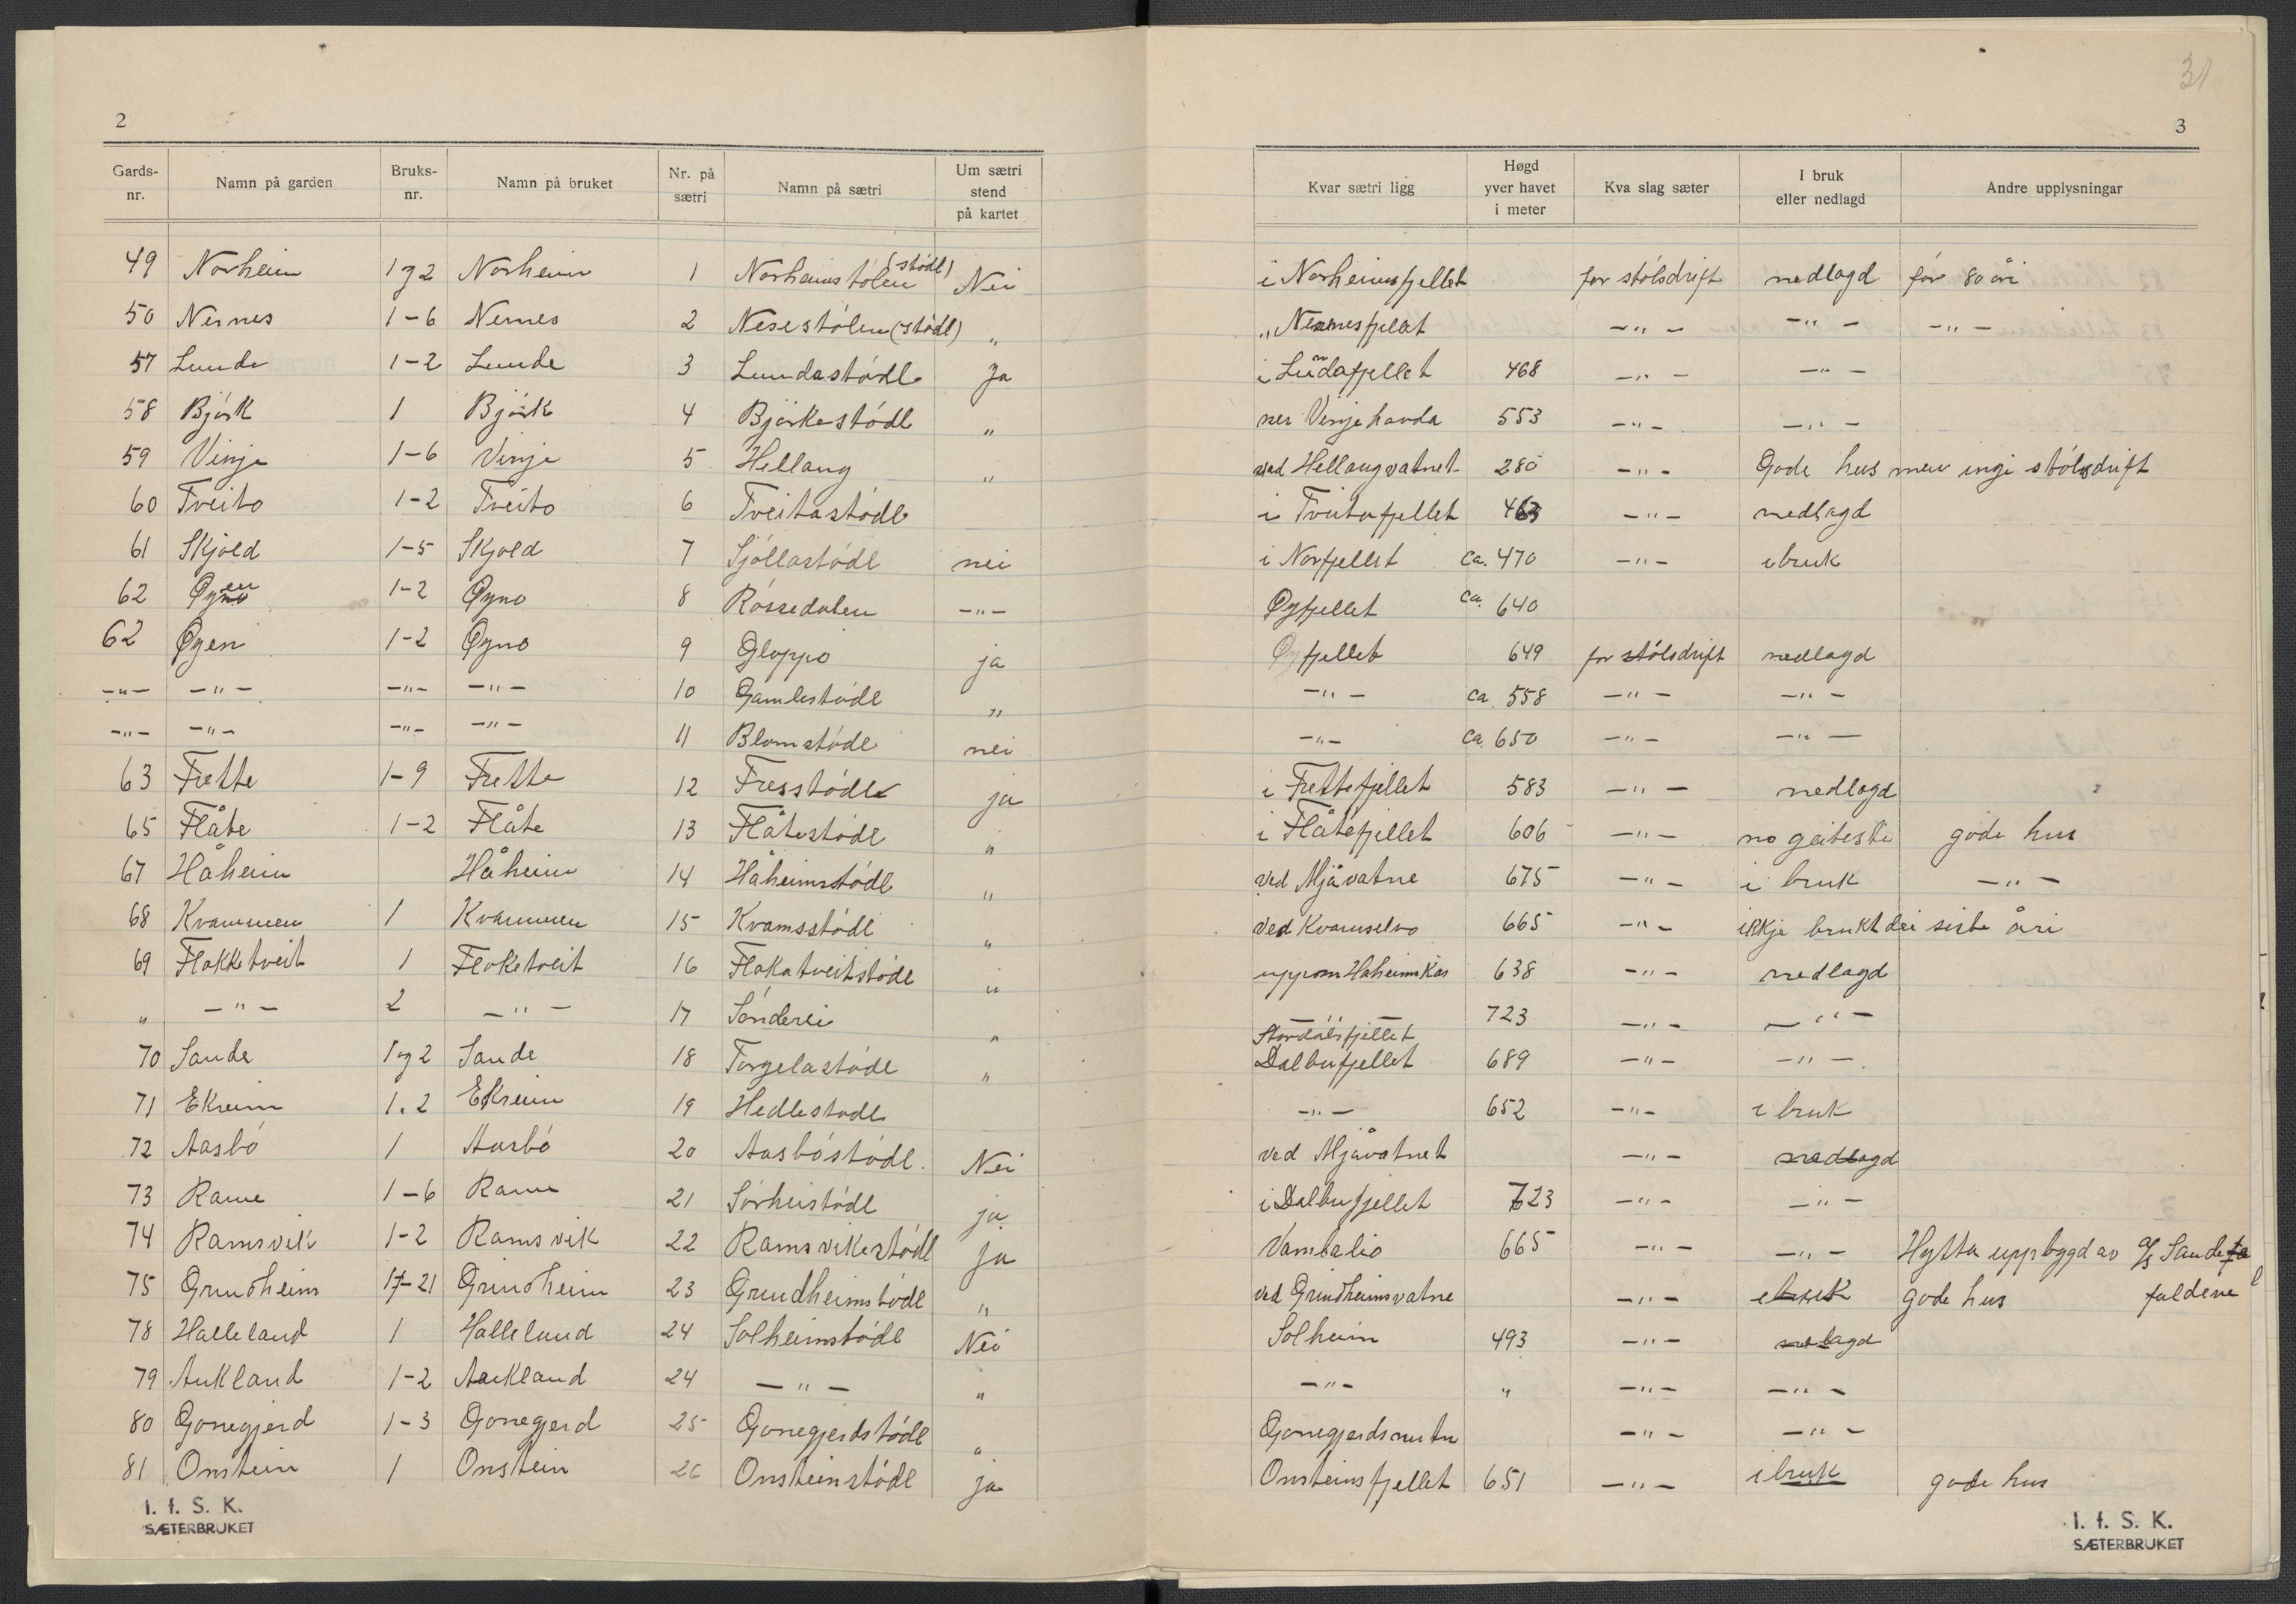 31
2
3
Gards-nr. Namn på garden Bruks-nr. Namn på bruket Nr. på sætri Namn på sætri Um sætri stend på kartet Kvar sætri ligg Høgd yver havet i meter Kva slag sæter I bruk eller nedlagd Andre upplysningar
49 Norheim 1 og 2 Norheim 1 Norheimstølen (stødl) Nei i Norheimsfjellet for stølsdrift nedlagd før 80 åri
50 Nernes 1-6 Nernes 2 Nesestølen (stødl) „ „ Nernesfjellet -„- -„- -„-
57 Lunde 1-2 Lunde 3 Lundastødl Ja i Lundafjellet 468 -„- -„-
58 Bjørk 1 Bjørk 4 Bjørkestødl „ ner Vinjehavda 553 -„- -„-
59 Vinje 1-6 Vinje 5 Hellaug „ ved Hellaugvatnet 280 -„- Gode hus men ingi stølsdrift
60 Tveito 1-2 Tveito 6 Tveitastødl i Tveitafjellet 463 -„- nedlagd
61 Skjold 1-5 Skjold 7 Sjøllastødl nei i Norfjellet ca. 470 -„- i bruk
62 Øyen 1-2 Øyno 8 Røssedalen -„- Øyfjellet ca. 640
62 Øyen 1-2 Øyno 9 Gloppo ja Øyfjellet 649 for stølsdrift nedlagd
-„- -„- -„- -„- 10 Gamlestødl „ -„- ca. 558 -„- -„-
-„- -„- -„- -„- 11 Blomstødl nei -„- ca. 650 -„- -„-
63 Frette 1-9 Frette 12 Fresstødl ja i Frettefjellet 583 -„- nedlagd
65 Flåte 1-2 Flåte 13 Flåtestødl „ i Flåtefjellet 606 -„- no geitestø gode hus
67 Håheim Håheim 14 Håheimstødl „ ved Mjåvatne 675 -„- i bruk -„-
68 Kvammen 1 Kvammen 15 Kvamsstødl „ ved Kvamselvo 665 -„- ikkje brukt dei siste åri
69 Flokketveit 1 Floketveit 16 Flokatveitstødl „ uppom Håheimskås 638 -„- nedlagd
„ -„- 2 -„- 17 Sønderei „ -„- 723 -„- -„-
70 Sande 1 og 2 Sande 18 Torgelastødl „ Stordalsfjellet Dalbufjellet 689 -„- -„-
71 Ekreim 1.2 Ekreim 19 Hedlestødl -„- 652 -„- i bruk
72 Aasbø 1 Aasbø 20 Aasbøstødl Nei ved Mjåvatnet -„- nedlagd
73 Rame 1-6 Rame 21 Sørheistødl ja i Dalbufjellet 723 -„- -„-
74 Ramsvik 1-2 Ramsvik 22 Ramsvikestødl Ja Vambalio 665 -„- -„- Hytta uppbygd av A/S Saude
75 Grindheim 17-21 Grindheim 23 Grindheimstødl „ ved Grindheimsvatne -„- i bruk gode hus faldene
78 Halleland 1 Halleland 24 Solheimstødl Nei Solheim 493 -„- nedlagd
79 Aukland 1-2 Aukland 24 -„- „ -„- „ -„- -„-
80 Gonegjerd 1-3 Gonegjerd 25 Gonegjerdstødl „ Gonegjerdsnutn -„- -„-
81 Onstein 1 Onstein 26 Onsteinstødl ja Onsteinsfjellet 651 -„- i bruk gode hus
I. f. S. K.
SÆTERBRUKET
I. f. S. K.
SÆTERBRUKET